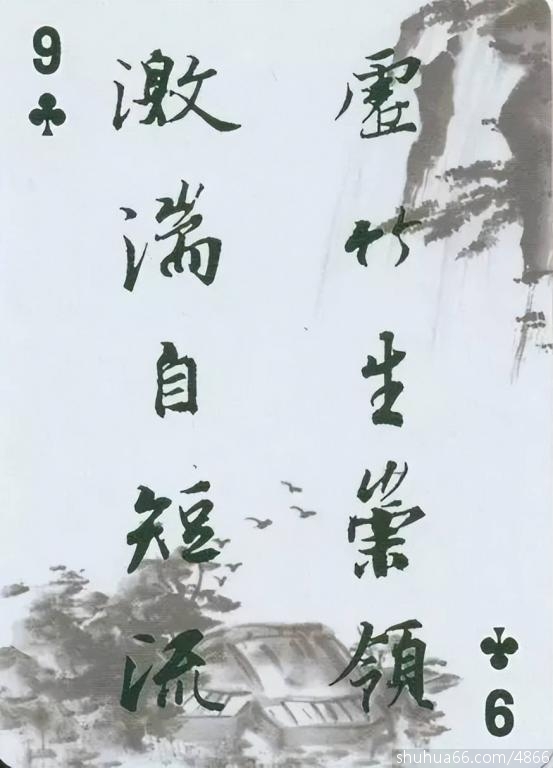 9
虛竹生崇領
激湍自短流
9
shuhua66.com/4866